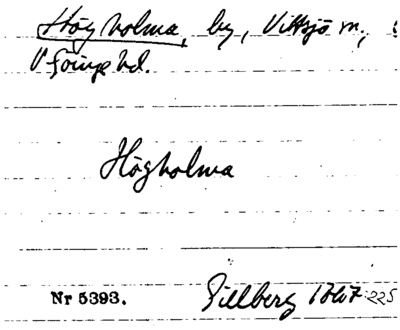 Högholma, by, Vittsjö sn,
V Göinge hd.
Högholma
Nr 5393. Gillberg 1767 225